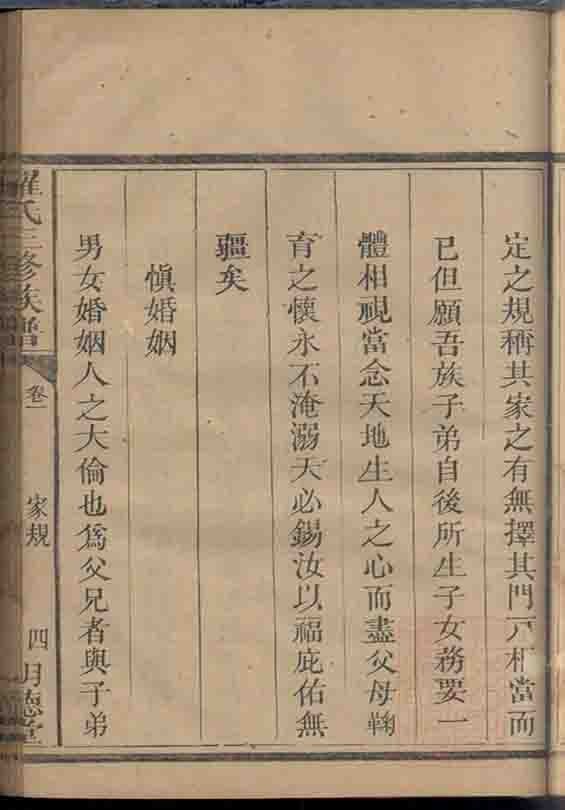 定之規稱其家之有無擇其門戸相當而
已但願吾族子弟自後所生子女務要一
體相視當念天地生人之心而盡父母鞠
育之懷永不淹溺天必錫汝以福庇佑無
疆矣
慎婚姻
男女婚姻人之大倫也爲父兄者與子弟
羅氏三修族譜
卷一
家規
四
明德堂